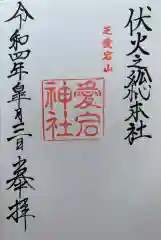 伏火之総本社
芝愛宕山
愛宕神社
令和四年皐月三日参拝